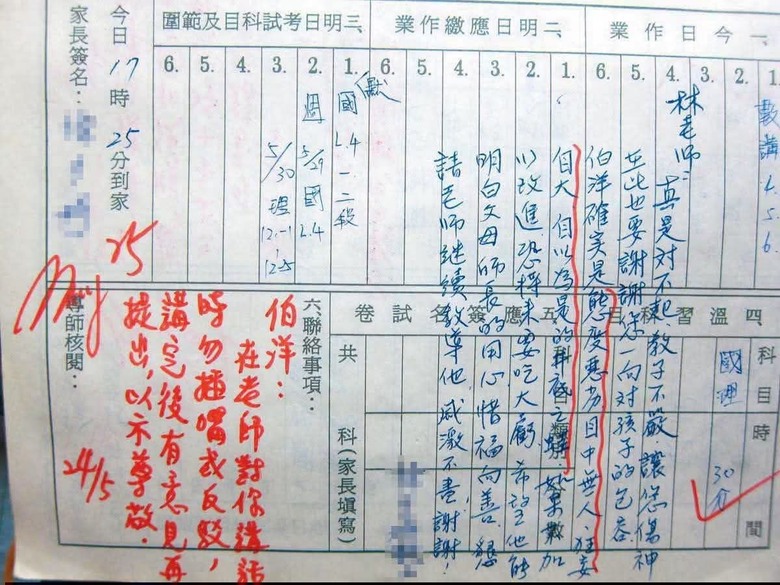 一今日作業
1.
2.
3.
4.
5.
6.
數講L5、6
二明日應繳作業
1.
2.
3.
4.
5.
6.
三明日考試科目及範圍
1.
2.
3.
4.
5.
6.
國L4一二段
(默)
週5/29國L4
5/30理12-1
12-5
今日17時25分到家
家長簽名：
林老師：
真是對不起，教子不嚴讓您傷神
至此也要謝謝您一向對孩子的包容
伯洋確實是態度惡劣目中無人、狂妄
自大、自以為是的井底之蛙，如果不加
以改進恐將來要吃大虧希望他能
明白父母師長的用心惜福向善。懇
請老師繼續教導他感激不盡，謝謝！
四溫習科目
科目
時間
國理
30分
五應簽名試卷
科類
數
共 科(家長填寫)
六、聯絡事項：
伯洋：
在老師對你講話
時勿插嘴或反駁，
講完後有意見再
提出，以示尊敬。
25
24/5
導師核閱：